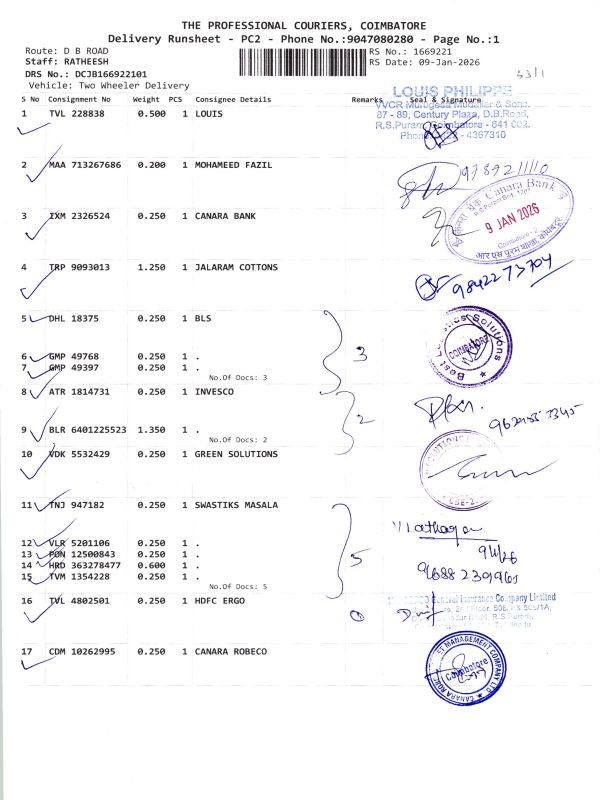 THE PROFESSIONAL COURIERS, COIMBATORE
Delivery Runsheet - PC2 - Phone No.:9047080280 - Page No.:1
Route: D B ROAD
RS No.: 1669221
Staff: RATHEESH
RS Date: 09-Jan-2026
DRS No.: DCJB166922101
Vehicle: Two Wheeler Delivery
53/1
S No Consignment No Weight PCS Consignee Details Remarks Seal & Signature
LOUIS PHILIPPE
VVCR Murugesa Mudaliar & Sons.
87 - 89, Century Plaza, D.B.Road,
R.S.Puram, Coimbatore - 641 002.
4367310
1 TVL 228838 0.500 1 LOUIS
2 MAA 713267686 0.200 1 MOHAMEED FAZIL
9789211110
3 IXM 2326524 0.250 1 CANARA BANK
केनरा बैंक Canara Bank
9 JAN 2026
Coimbatore - 2
4 TRP 9093013 1.250 1 JALARAM COTTONS
9842273704
5 DHL 18375 0.250 1 BLS
Best Logistics Solutions
COIMBATORE
6 GMP 49768 0.250 1 .
7 GMP 49397 0.250 1 .
3
No.Of Docs: 3
8 ATR 1814731 0.250 1 INVESCO
2
9 BLR 6401225523 1.350 1 .
No.Of Docs: 2
10 VDK 5532429 0.250 1 GREEN SOLUTIONS
CBE-2
11 TNJ 947182 0.250 1 SWASTIKS MASALA
12 VLR 5201106 0.250 1 .
13 PON 12500843 0.250 1 .
14 HRD 363278477 0.600 1 .
15 TVM 1354228 0.250 1 .
5
9/1/26
No.Of Docs: 5
16 TVL 4802501 0.250 1 HDFC ERGO
1
General Insurance Company Limited
R.S.Puram,
17 CDM 10262995 0.250 1 CANARA ROBECO
CANARA ROBECO ASSET MANAGEMENT COMPANY LTD
Coimbatore